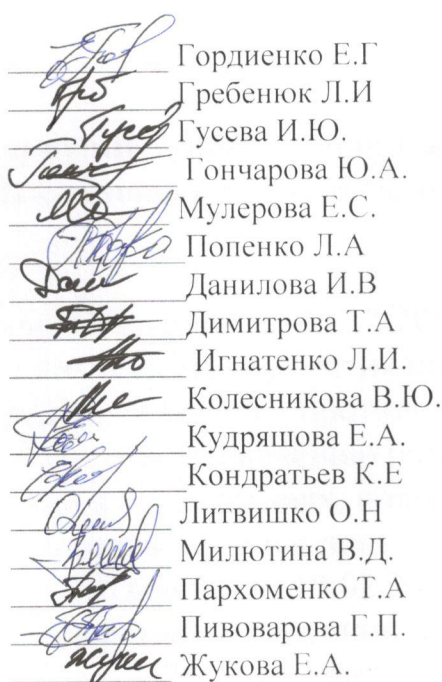 Гордиенко Е.Г
Гребенюк Л.И
Гусева И.Ю.
Гончарова Ю.А.
Мулерова Е.С.
Попенко Л.А
Данилова И.В
Димитрова Т.А
Игнатенко Л.И.
Колесникова В.Ю.
Кудряшова Е.А.
Кондратьев К.Е
Литвишко О.Н
Милютина В.Д.
Пархоменко Т.А
Пивоварова Г.П.
Жукова Е.А.